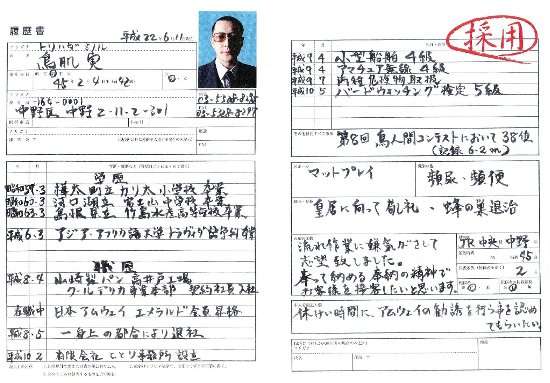 履歴書
平成22.6.11
トリハダ ミノル
鳥肌 実
45
2
4
42
165-0001
中野区 中野 2-11-2-301
学歴
昭和59.3 樺太町立 カリ太小学校 卒業
昭和60.3 河口湖立 富士山中学校 卒業
昭和63.3 島根県立 竹島水産高等学校 卒業
平成6.3 アジア・アフリカ語大学 ドラヴィダ語学科 卒業
職歴
平成8.4 山崎製パン 高井戸工場
クールデリカ事業本部 契約社員 入社
在職中 日本アムウェイ エメラルド会員 昇格
平成8.5 一身上の都合により退社
平成10.2 有限会社 ととり事務所 設立
採用
平成9 4 小型船舶 4級
平成9 4 アマチュア無線 4級
平成9 7 丙種危険物取扱
平成10 5 バードウォッチング検定 5級
第8回 鳥人間コンテストにおいて38位
(記録 6.2m)
マットプレイ
頻尿・頻便
皇居に向って敬礼・蜂の巣退治
流れ作業に嫌気がさして
志望致しました。
奉って納める 奉納の精神で
お客様を接客したいと思います。
JR中央 中野
45
2
休けい時間に、アムウェイの勧誘を行う事を認めて
もらいたい。